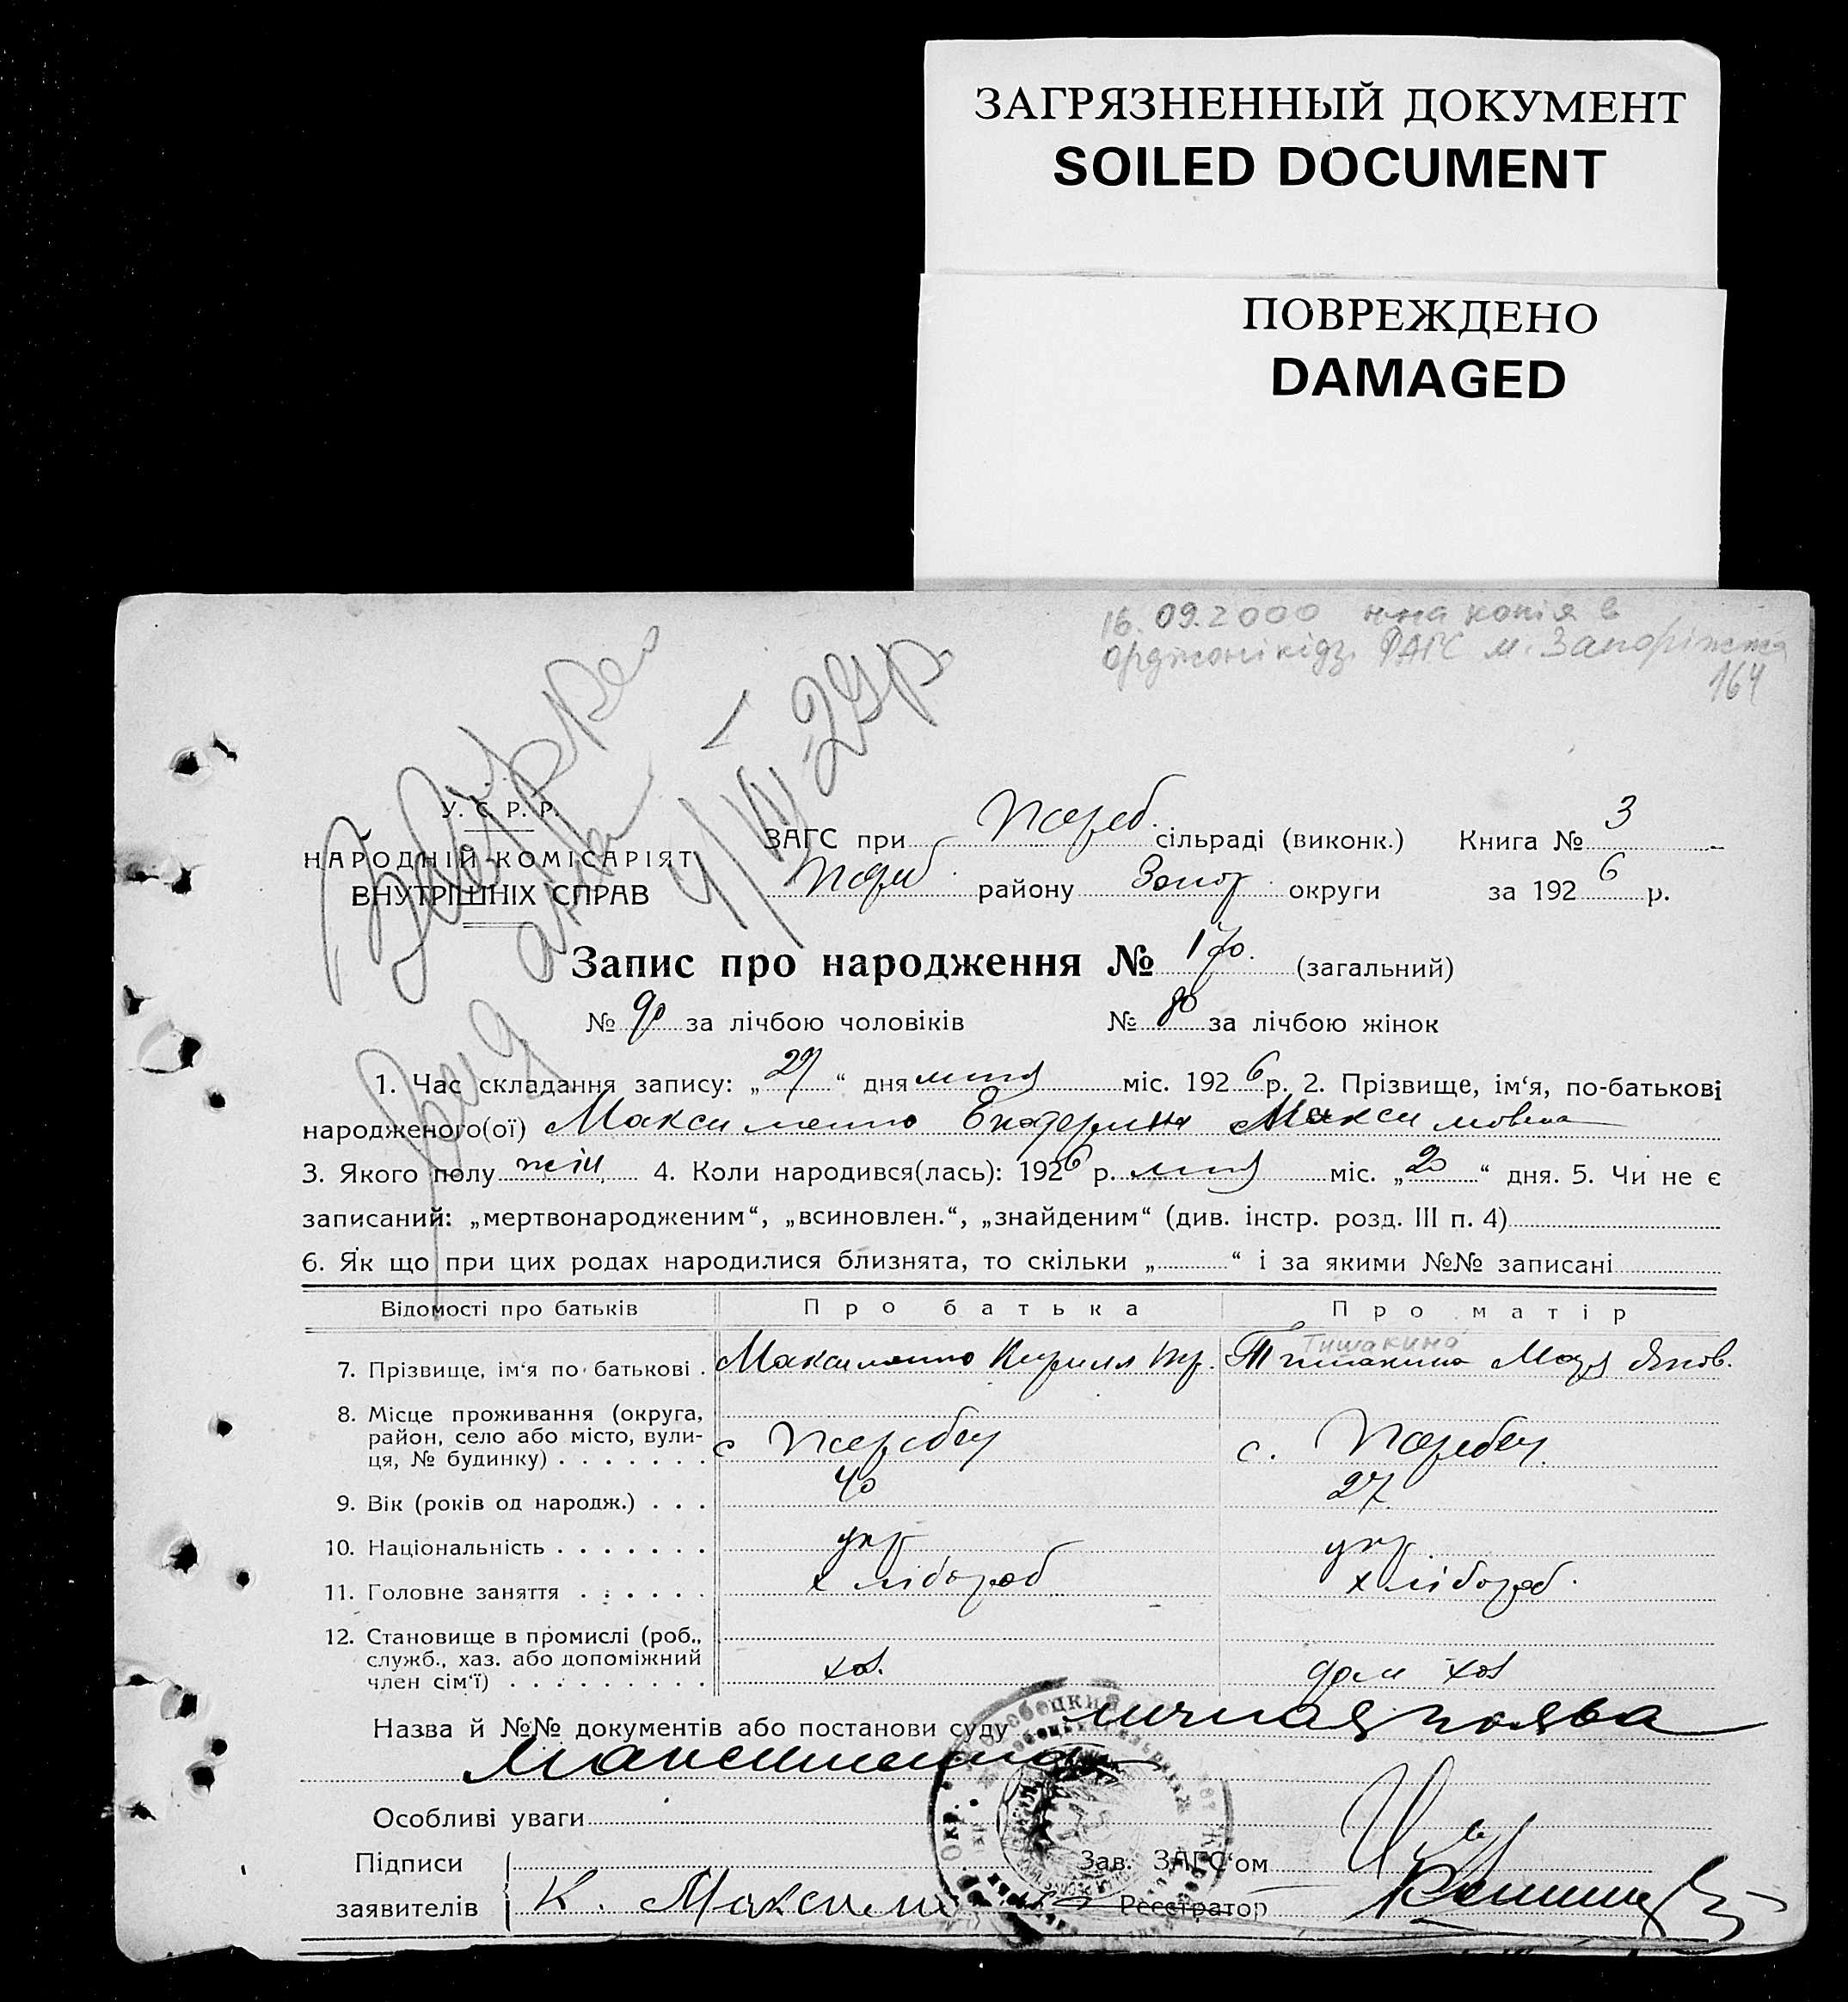 ЗАГРЯЗНЕННЫЙ ДОКУМЕНТ
SOILED DOCUMENT
ПОВРЕЖДЕНО
DAMAGED
16.09.2000 н-на копія в
Орджонікідз. РАГС м. Запоріжжя
164
У. С. Р. Р.
НАРОДНІЙ КОМІСАРІЯТ
ВНУТРІШНІХ СПРАВ
ЗАГС при Жереб. сільраді (виконк.) Книга № 3
Жереб. району Запор. округи за 1926 р.
Запис про народження № 170. (загальний)
№ 90 за лічбою чоловіків № 80 за лічбою жінок
1. Час складання запису: „27“ дня липня міс. 1926 р. 2. Прізвище, ім‘я, по-батькові
народженого(ої) Максименко Екатерина Максимовна
3. Якого полу жін. 4. Коли народився(лась): 1926 р. липня міс. „20“ дня. 5. Чи не є
записаний: „мертвонародженим“, „всиновлен.“, „знайденим“ (див. інстр. розд. III п. 4)
6. Як що при цих родах народилися близнята, то скільки „ “ і за якими №№ записані
Відомості про батьків Про батька Про матір
Тишакина
7. Прізвище, ім‘я по-батькові . Максименко Кирилл Тишакина Яков.
8. Місце проживання (округа,
район, село або місто, вули-
ця, № будинку) . . . . . . . с Жеребец с. Жеребец
9. Вік (років од народж.) . . . 40 27
10. Національність . . . . . . . укр укр.
11. Головне заняття . . . . . . хлібороб хлібороб.
12. Становище в промислі (роб.,
служб., хаз. або допоміжний
член сім‘ї) . . . . . . . . . хоз. дом хоз
Назва й №№ документів або постанови суду личная заява
Максименко
Особливі уваги
Підписи Зав. ЗАГС‘ом
заявителів К. Максим Реєстратор